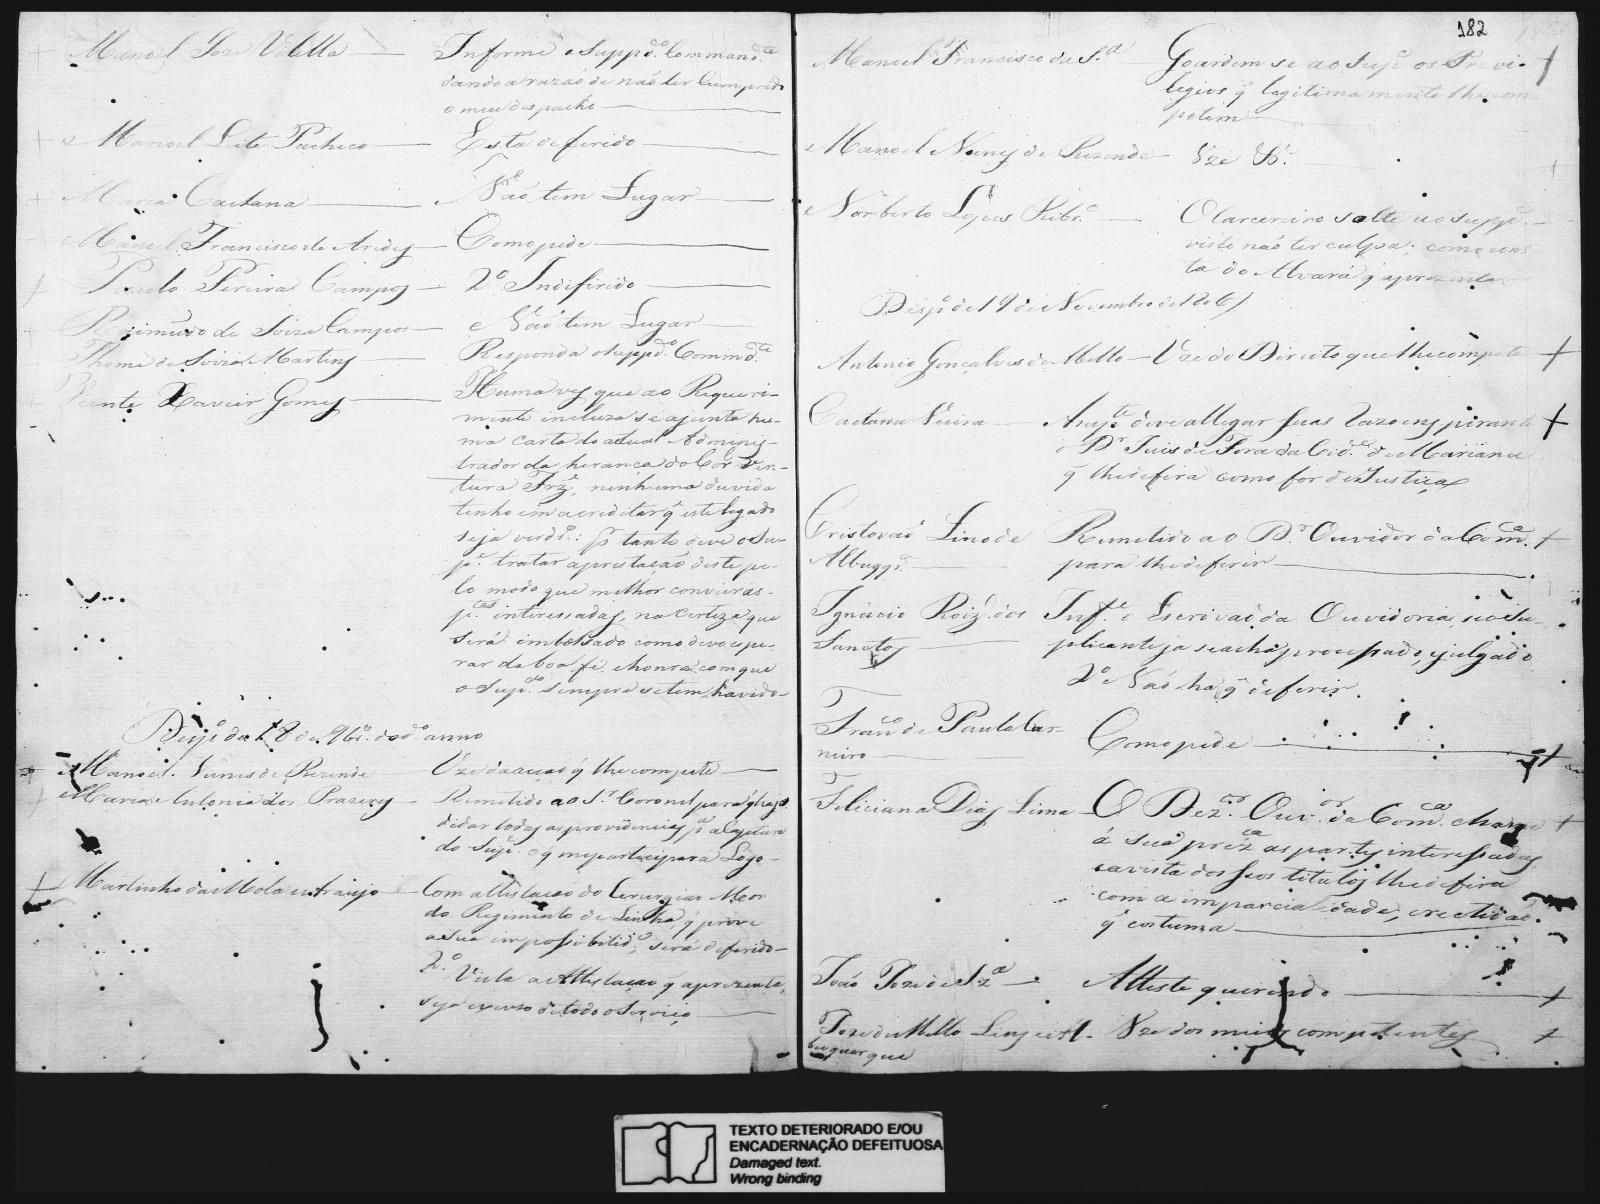 Manoel Joze Vilella — Informe o Supp.do Command.te
dando a razaõ de naõ ter Cumprido
o meu despacho
Manoel Leite Pacheco — Esta deferido
Maria Caetana — Naõ tem Lugar
Manoel Francisco de Aredes — Como pede
Paulo Pereira Campos — 2º Indifirido
Raimundo de Soiza Campos — Naõ tem Lugar
Thome de Soiza Martins — Responda o Supp.do Comm.te
Vicente Xavier Gomes — Huma ves que ao Requeri-
mento incluzo se ajunta hu-
ma carta do actual Adminis-
trador da herança do Cor.el Ven-
tura Frz', nenhuma duvida
tenho em acreditar q̃ este legado
seja verd.º: p.r tanto deve o Su-
p.e tratar a prestaçaõ deste pe-
lo modo que melhor convier as
p.tes interessadas, na Certeza que
será embolsado como devo espe-
rar da boa fé, e honra com que
o Sup.do sempre se tem havido
Desp.º de 18 de 9br.º do d.º anno
Manoel Nunes de Rezende — Uze da acçaõ q̃ lhe compete
Maria Antonia dos Prazeres — Remetido ao S.r Coronel para q̃ haja
de dar todas as providencias p.a a Captura
do Sup.e o q̃ me participará Logo
Martinho da Mota e Araujo — Com attestaçaõ do Cerurgiaõ Mor
do Regimento de Linha, q̃ prove
a sua impossibilid.e, será deferido
2º Vista a Attestaçaõ q̃ aprezenta,
seja escuzo de todo o Serviço
182
Manoel Francisco da S.a — Goardem se ao Sup.e os Previ-
legios q̃ legitimamente lhe com
petem
Manoel Nunes de Rezende — Uze
Norberto Lopes Ribr.º — O Carcereiro solte ao Supp.e
visto naõ ter culpa, como cons
ta do Alvará q̃ aprezenta
Desp.º de 19 de Novembro de 1806
Antonio Gonçalves de Mello — Uze do Direito que lhe compete
Caetana Vieira — A sup.te deve allegar suas Razoens perante
o D.r Juis de Fora da Cid.e de Mariana
q̃ lhe defira como for de Justiça
Cristovaõ Lino de — Remetido ao D.r Ouvidor da Com.ca
Albuqq.e — para lhe deferir
Ignacio Roiz' dos — Inf.e o Escrivaõ da Ouvidoria, se o Su-
Santos — plicante ja se acha processado, e julgado
2º Naõ ha q̃ deferir.
Fran.co de Paula Car- — Como pede
neiro
Feliciana Dias Lima — O Dez.or Ouv.or da Com.ca chame
á sua prez.ca as partes interessadas
e a vista dos seos titulos lhe defira
com a imparcialidade, e rectidaõ
q̃ costuma
Joaõ Joze de Sz.a — Atteste querendo
Joze de Mello Lins e Al- — Uze dos meios competentes
buquerque
TEXTO DETERIORADO E/OU
ENCADERNAÇÃO DEFEITUOSA
Damaged text.
Wrong binding